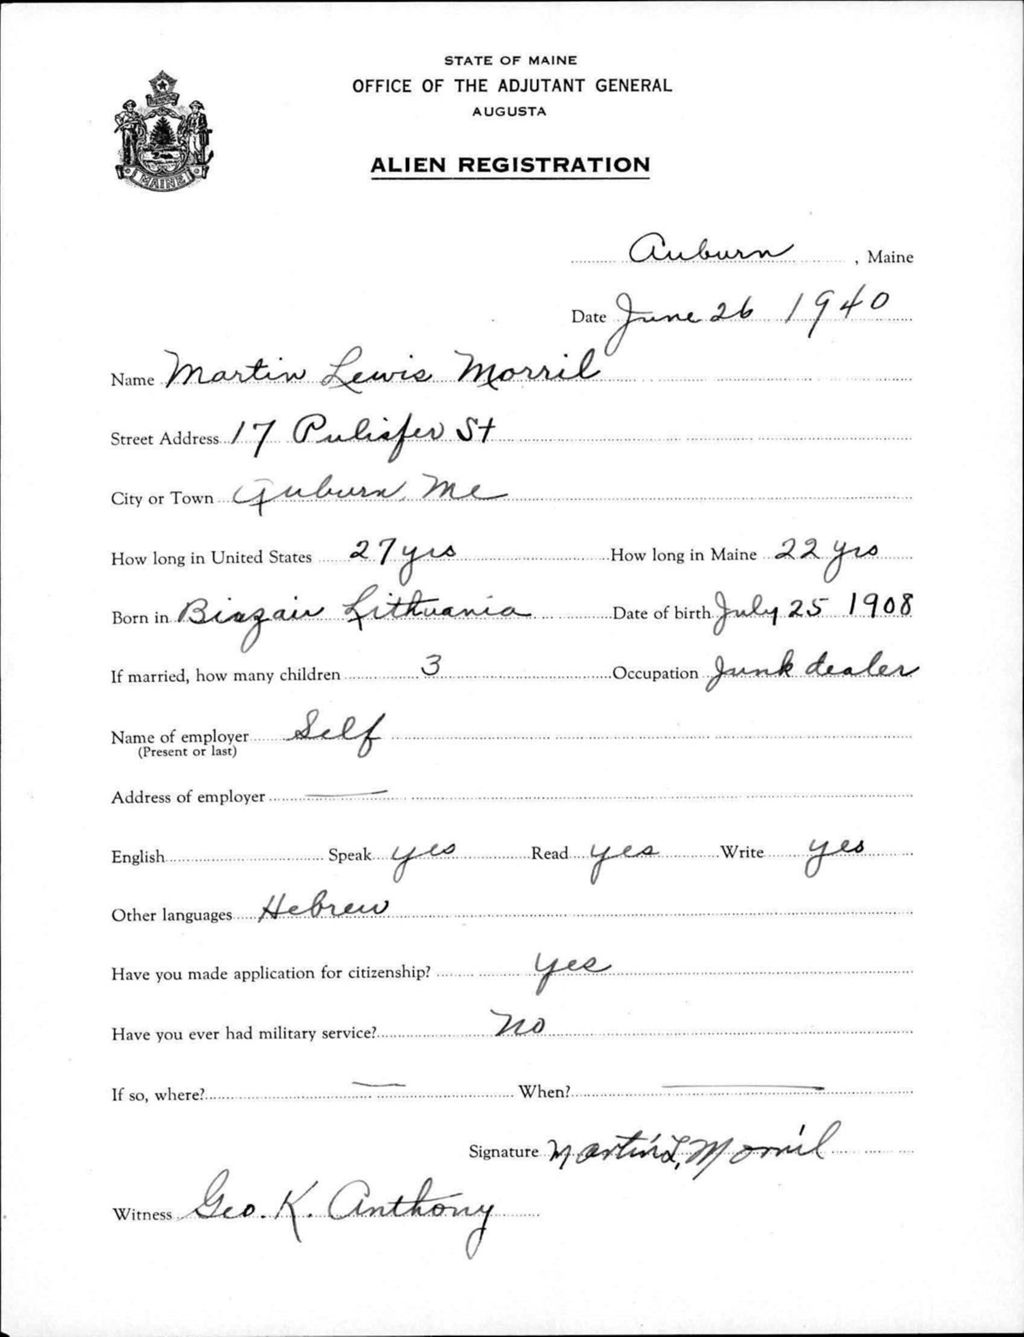 STATE OF MAINE
OFFICE OF THE ADJUTANT GENERAL
AUGUSTA
MAINE
ALIEN REGISTRATION
Auburn, Maine
Date June 26 1940
Name Martin Lewis Morril
Street Address 17 Pulisfer St
City or Town Auburn, Me
How long in United States 27 yrs How long in Maine 22 yrs
Born in Lithuania Date of birth July 25 1908
If married, how many children 3 Occupation Junk dealer
Name of employer Self
(Present or last)
Address of employer —
English Speak yes Read yes Write yes
Other languages Hebrew
Have you made application for citizenship? Yes
Have you ever had military service? No
If so, where? — When? —
Signature Martin L. Morril
Witness Geo. K. Anthony